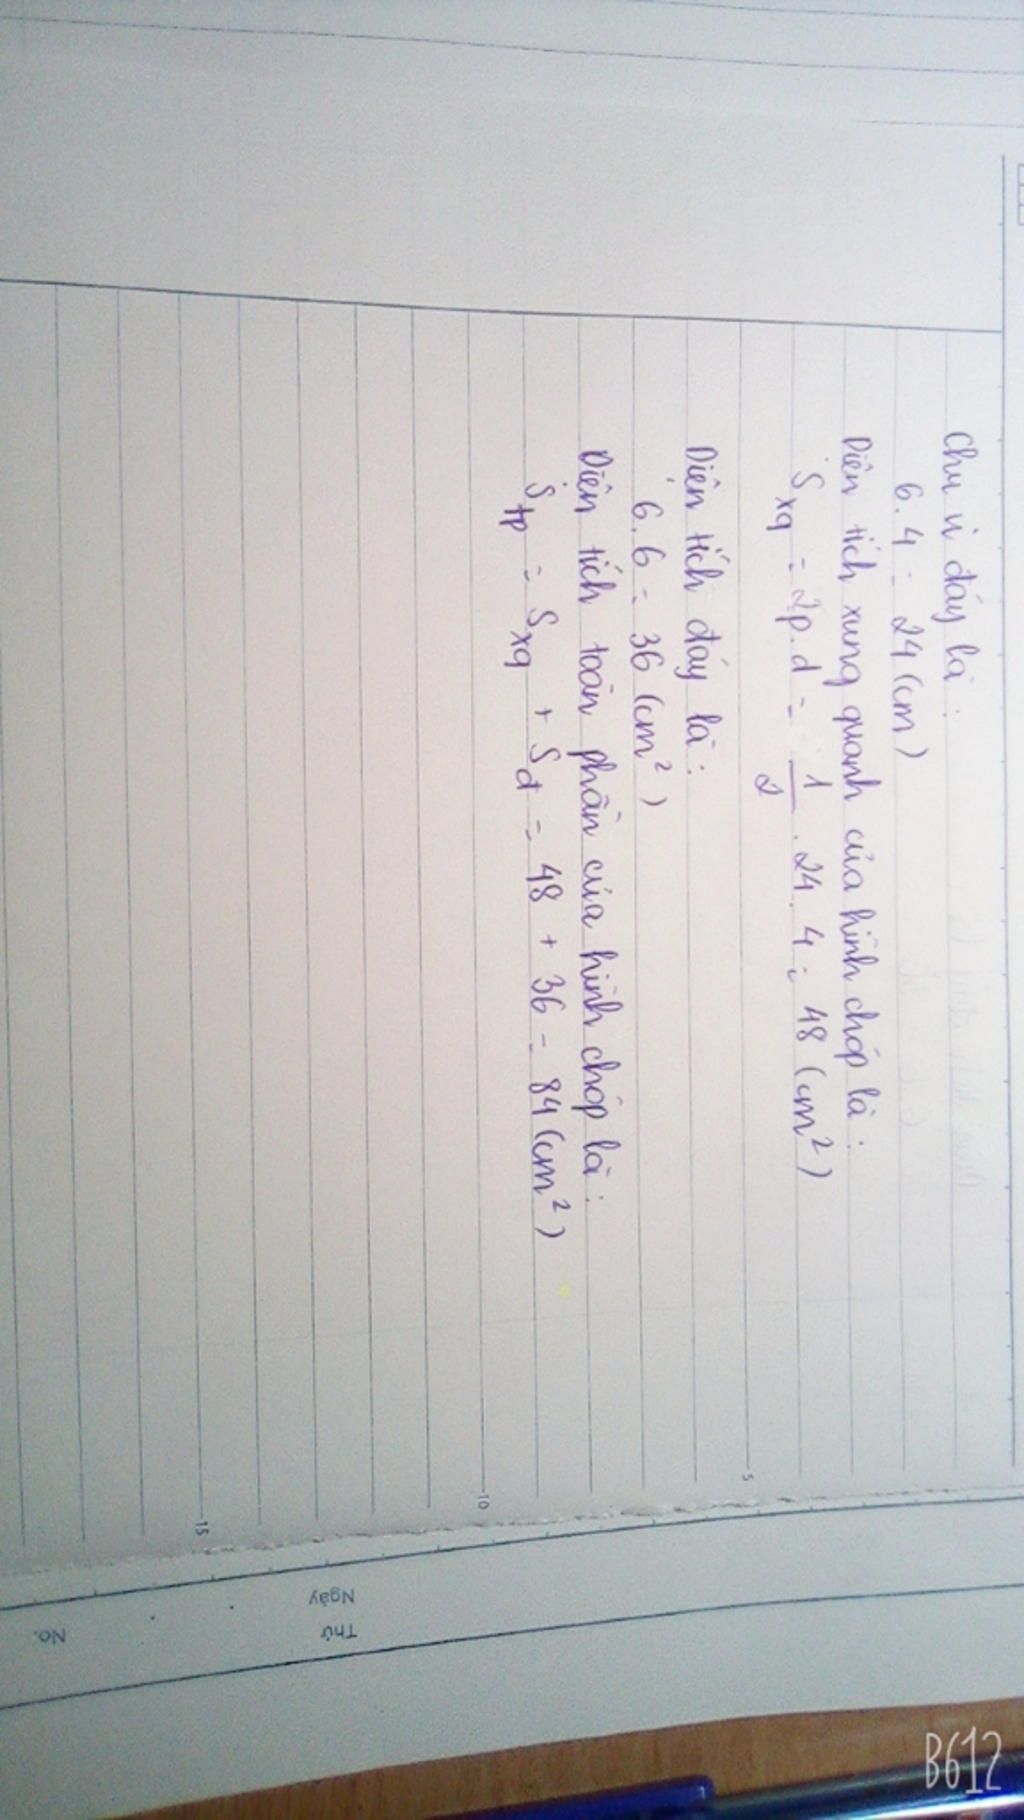 Chu vi đáy là:
6.4 = 24 (cm)
Diện tích xung quanh của hình chóp là:
Sxq = 2p.d = 1/2 . 24 . 4 = 48 (cm²)
Diện tích đáy là:
6.6 = 36 (cm²)
Diện tích toàn phần của hình chóp là:
Stp = Sxq + Sđ = 48 + 36 = 84 (cm²)
5
10
15
Thứ
Ngày
No.
B612